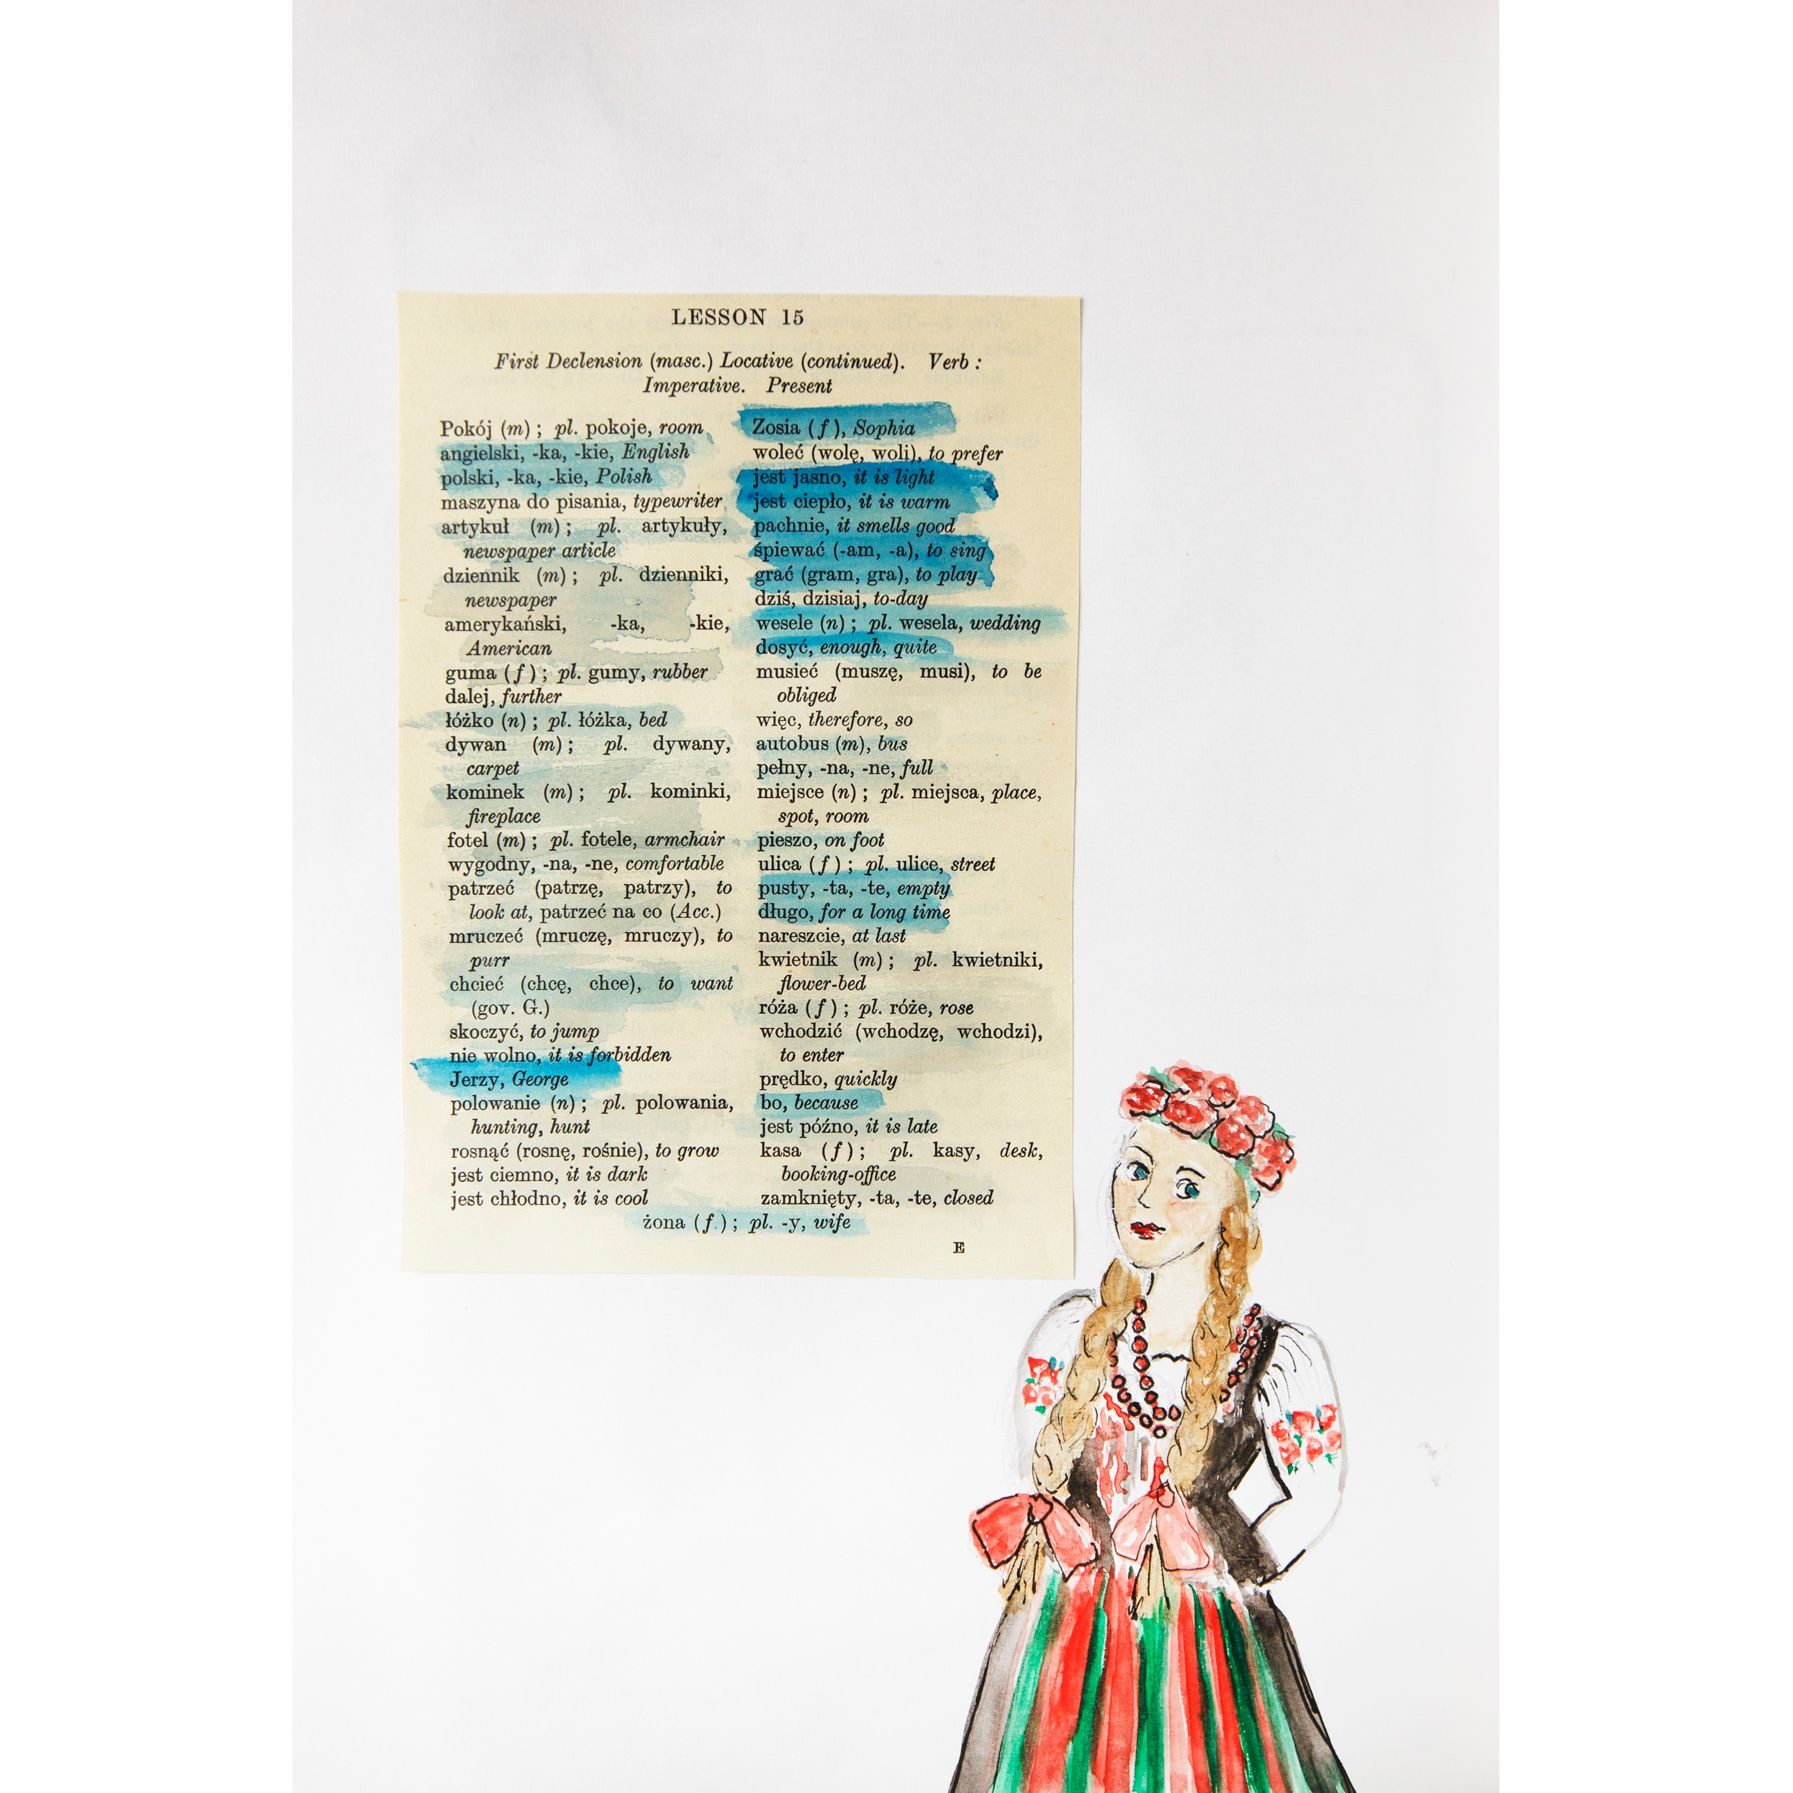 LESSON 15
First Declension (masc.) Locative (continued). Verb :
Imperative. Present
Pokój (m) ; pl. pokoje, room
angielski, -ka, -kie, English
polski, -ka, -kie, Polish
maszyna do pisania, typewriter
artykuł (m) ; pl. artykuły,
newspaper article
dziennik (m) ; pl. dzienniki,
newspaper
amerykański, -ka, -kie,
American
guma (f) ; pl. gumy, rubber
dalej, further
łóżko (n) ; pl. łóżka, bed
dywan (m) ; pl. dywany,
carpet
kominek (m) ; pl. kominki,
fireplace
fotel (m) ; pl. fotele, armchair
wygodny, -na, -ne, comfortable
patrzeć (patrzę, patrzy), to
look at, patrzeć na co (Acc.)
mruczeć (mruczę, mruczy), to
purr
chcieć (chcę, chce), to want
(gov. G.)
skoczyć, to jump
nie wolno, it is forbidden
Jerzy, George
polowanie (n) ; pl. polowania,
hunting, hunt
rosnąć (rosnę, rośnie), to grow
jest ciemno, it is dark
jest chłodno, it is cool
Zosia (f), Sophia
woleć (wolę, woli), to prefer
jest jasno, it is light
jest ciepło, it is warm
pachnie, it smells good
śpiewać (-am, -a), to sing
grać (gram, gra), to play
dziś, dzisiaj, to-day
wesele (n) ; pl. wesela, wedding
dosyć, enough, quite
musieć (muszę, musi), to be
obliged
więc, therefore, so
autobus (m), bus
pełny, -na, -ne, full
miejsce (n) ; pl. miejsca, place,
spot, room
pieszo, on foot
ulica (f) ; pl. ulice, street
pusty, -ta, -te, empty
długo, for a long time
nareszcie, at last
kwietnik (m) ; pl. kwietniki,
flower-bed
róża (f) ; pl. róże, rose
wchodzić (wchodzę, wchodzi),
to enter
prędko, quickly
bo, because
jest późno, it is late
kasa (f) ; pl. kasy, desk,
booking-office
zamknięty, -ta, -te, closed
żona (f.) ; pl. -y, wife
E